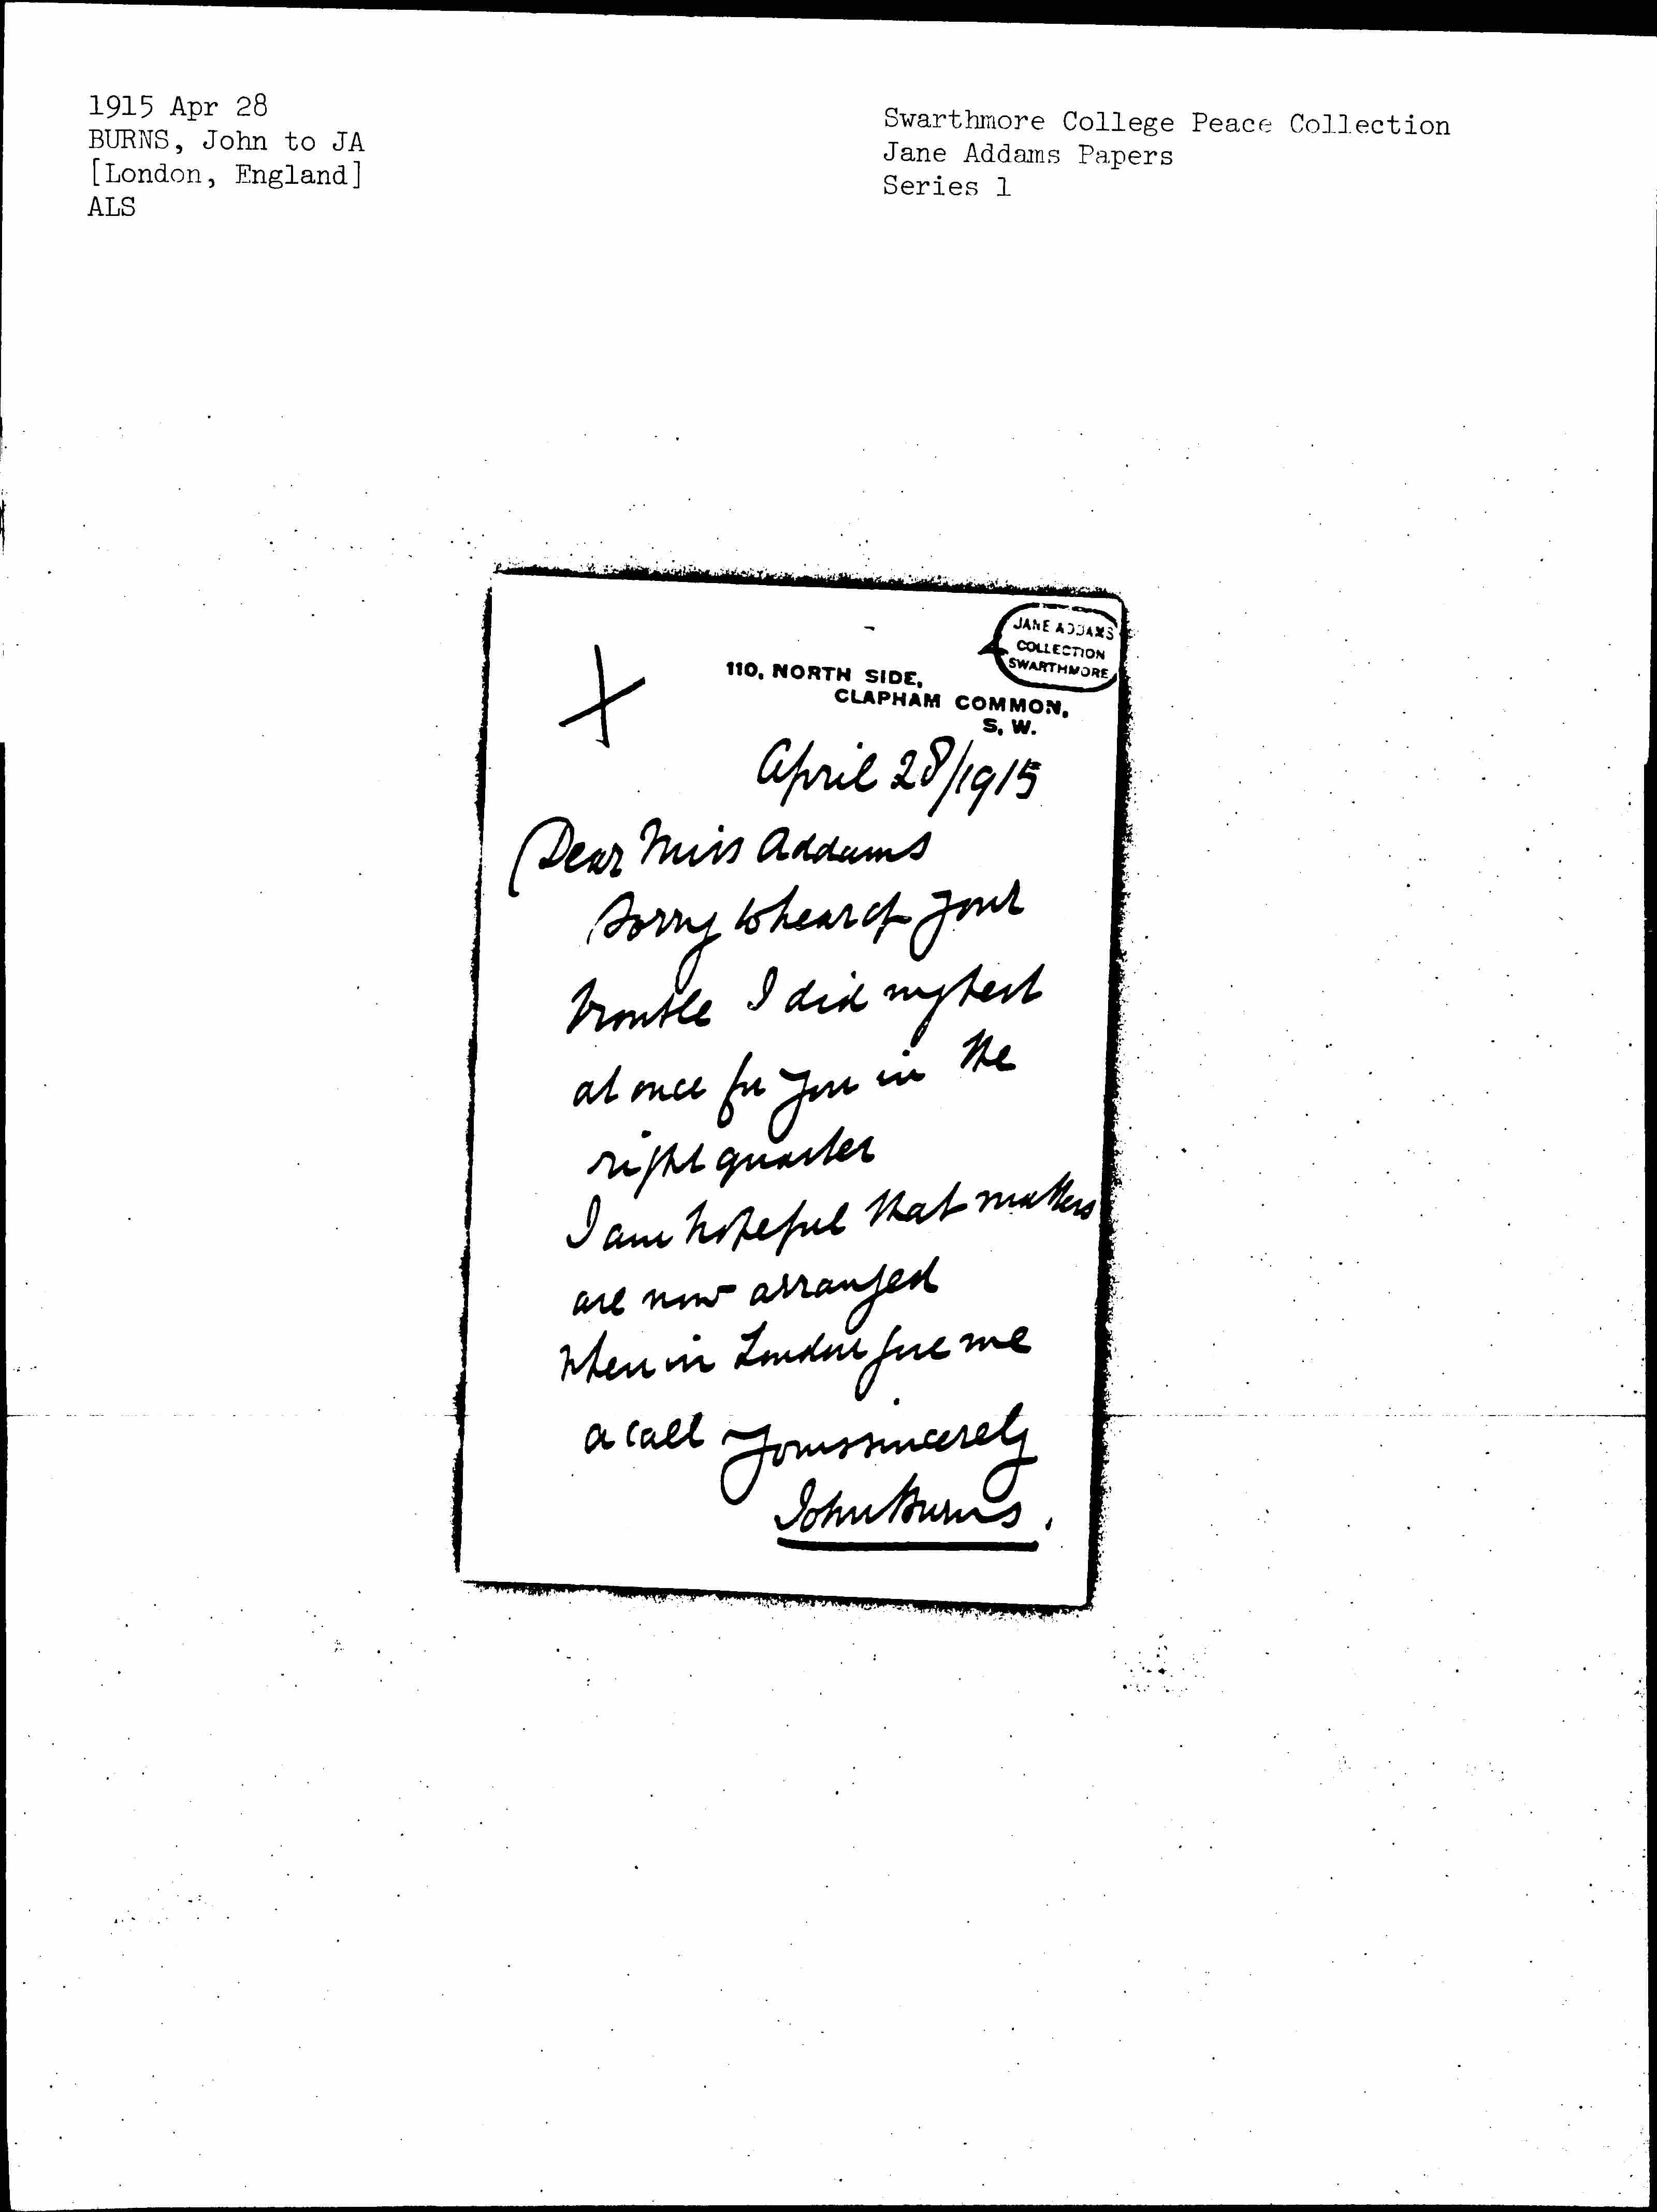 1915 Apr 28
BURNS, John to JA
[London, England]
ALS
Swarthmore College Peace Collection
Jane Addams Papers
Series 1
JANE ADDAMS
COLLECTION
SWARTHMORE
110, NORTH SIDE,
CLAPHAM COMMON,
S. W.
April 28/1915
Dear Miss Addams
Sorry to hear of your
trouble I did my best
at once for you in the
right quarter
I am hopeful that matters
are now arranged
When in London give me
a call Yours sincerely
John Burns.